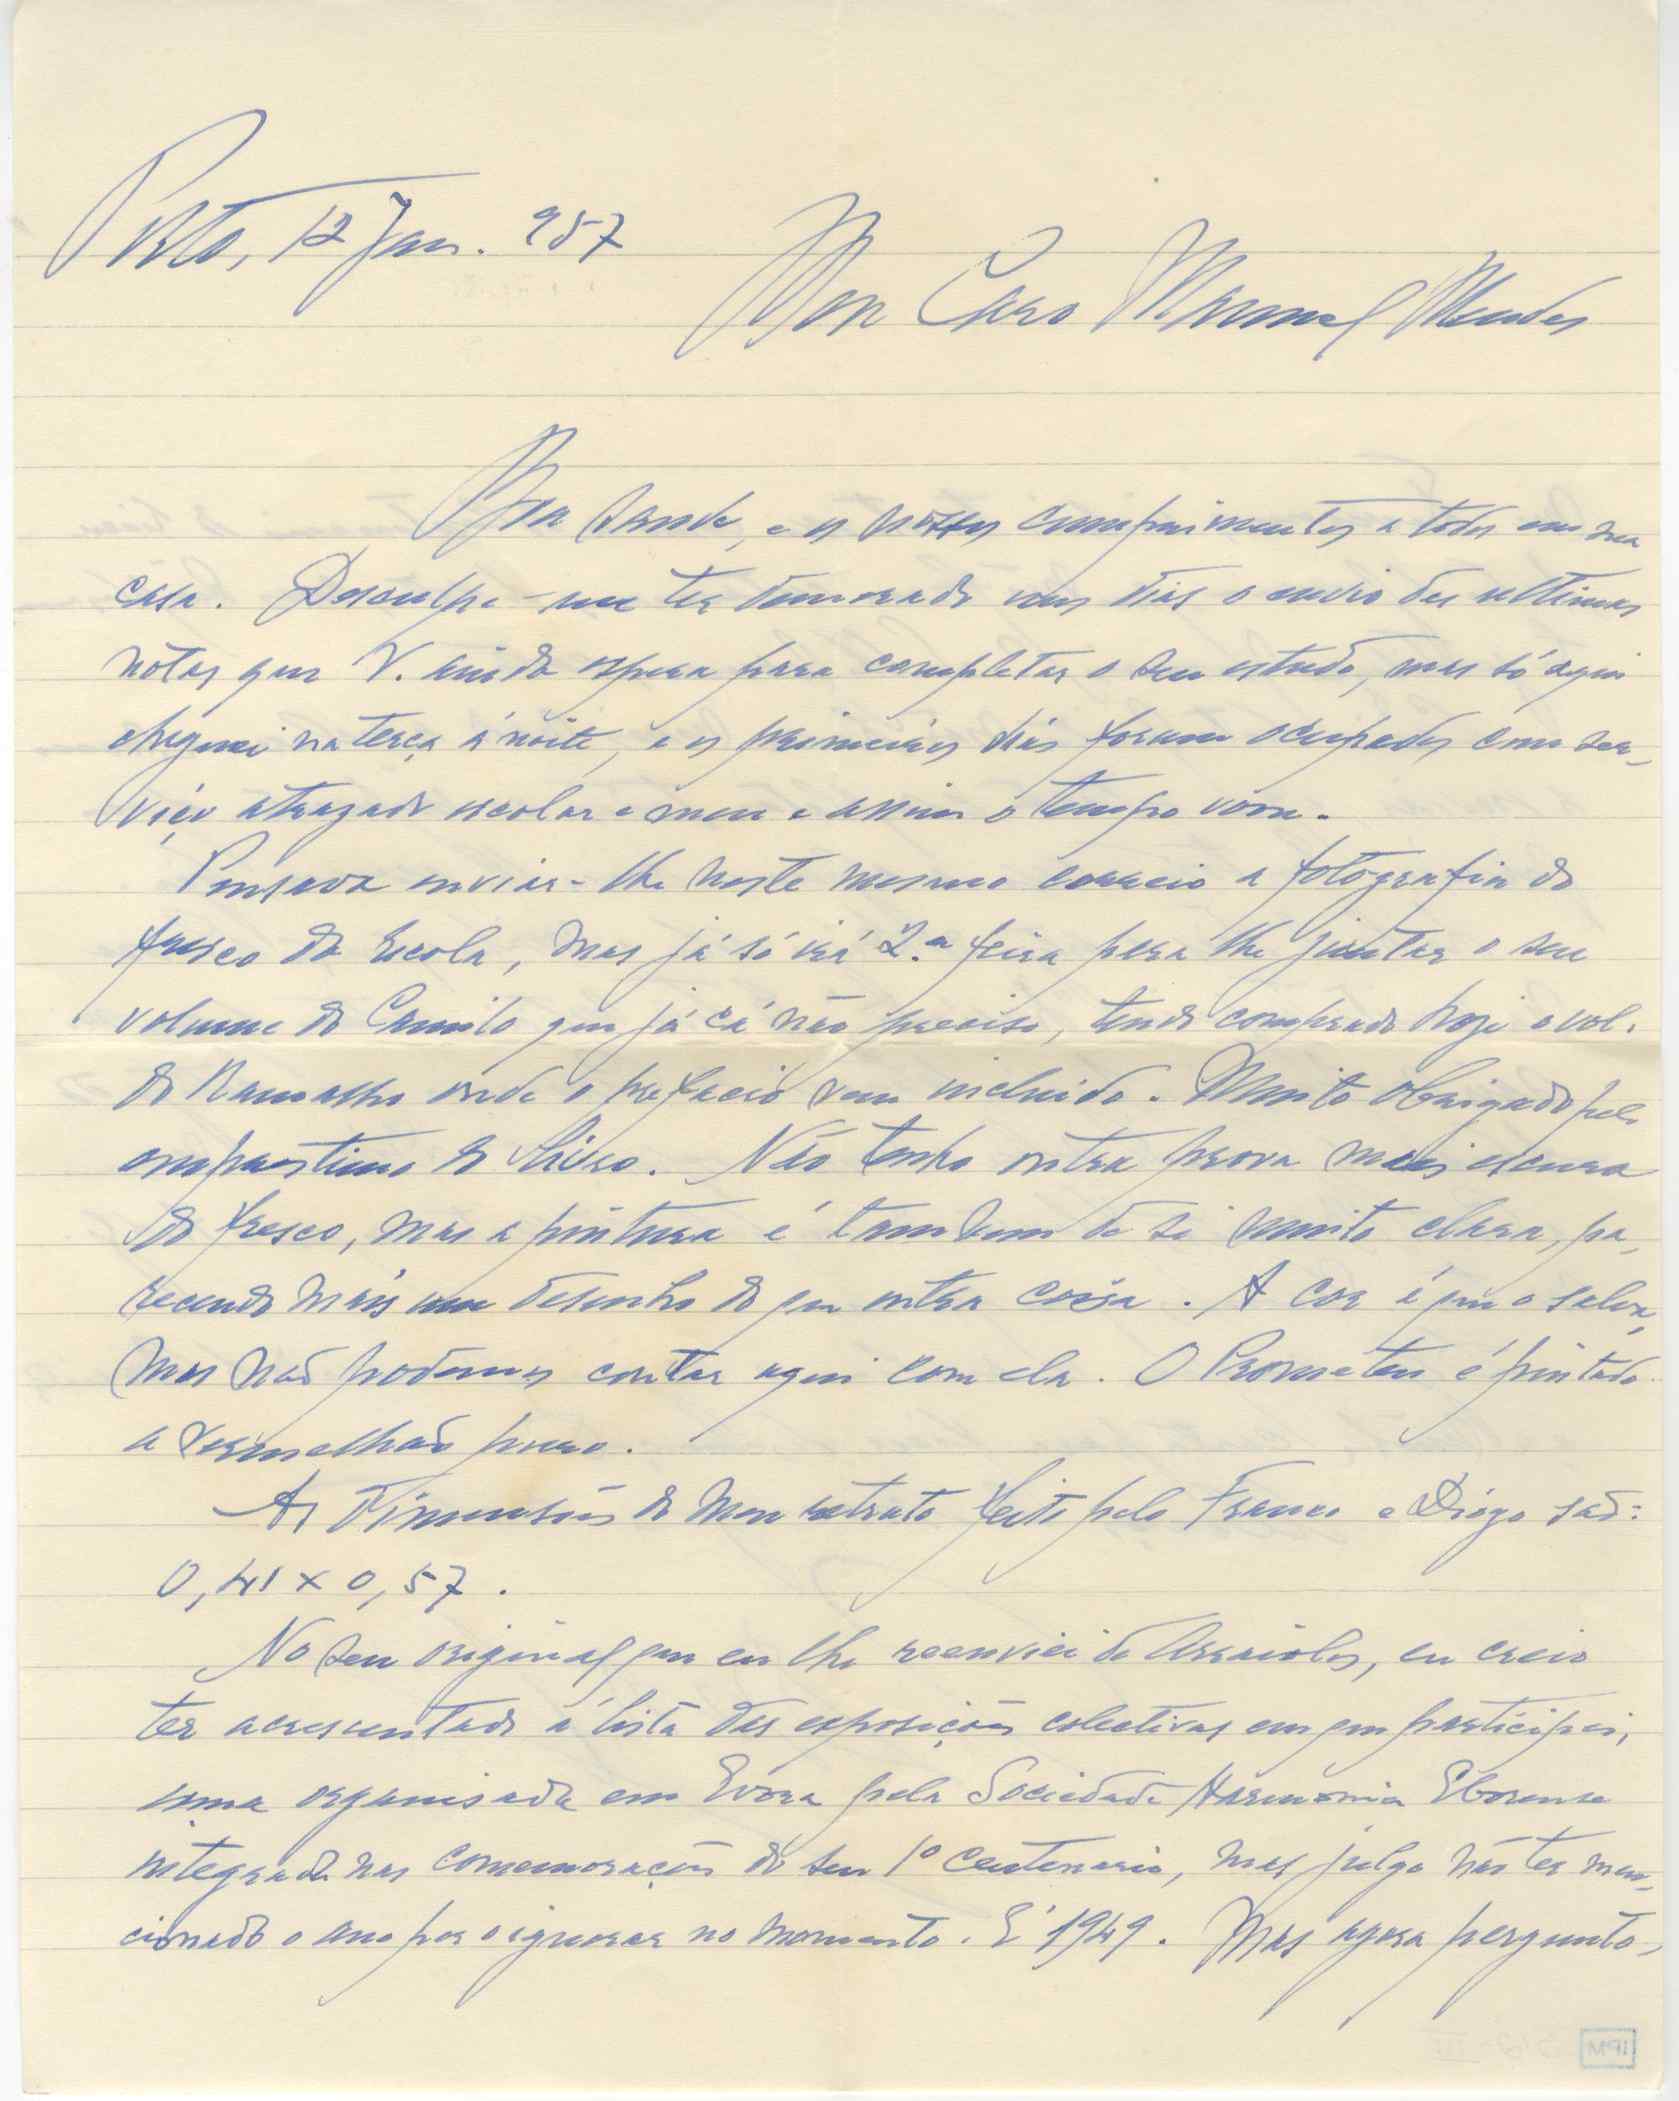 Porto, 12 Jan. 957
Meu Caro Manuel Mendes
Boa saude, e os nossos cumprimentos a todos em sua
casa. Desculpe-me ter demorado uns dias o envio das ultimas
notas que V. ainda espera para completar o seu estudo, mas só aqui
cheguei na terça á noite, e os primeiros dias foram ocupados com ser-
viço atrazado escolar e meu e assim o tempo voou.
Pensava enviar-lhe neste mesmo correio a fotografia do
fresco da Escola, mas já só irá 2.ª feira para lhe juntar o seu
volume do Camilo que já cá não preciso, tendo comprado hoje o vol.
do Ramalho onde o prefacio vem incluido. Muito obrigado pelo
emprestimo do livro. Não tenho outra prova mais escura
do fresco, mas a pintura é tambem de si muito clara, pa-
recendo mais um desenho do que outra coisa. A cor é que o salva,
mas não podemos contar aqui com ela. O Prometeu é pintado
a vermelhão puro.
As dimensões do meu retrato feito pelo Franco e Diogo são:
0,41 x 0,57.
No seu original que eu lhe reenviei de Arraiolos, eu creio
ter acrescentado á lista das exposições colectivas em que participei,
uma organisada em Evora pela Sociedade Harmonia Eborense
integrada nas comemorações do seu 1º centenario, mas julgo não ter men-
cionado o ano por o ignorar no momento. É 1949. Mas agora pergunto,
IPM